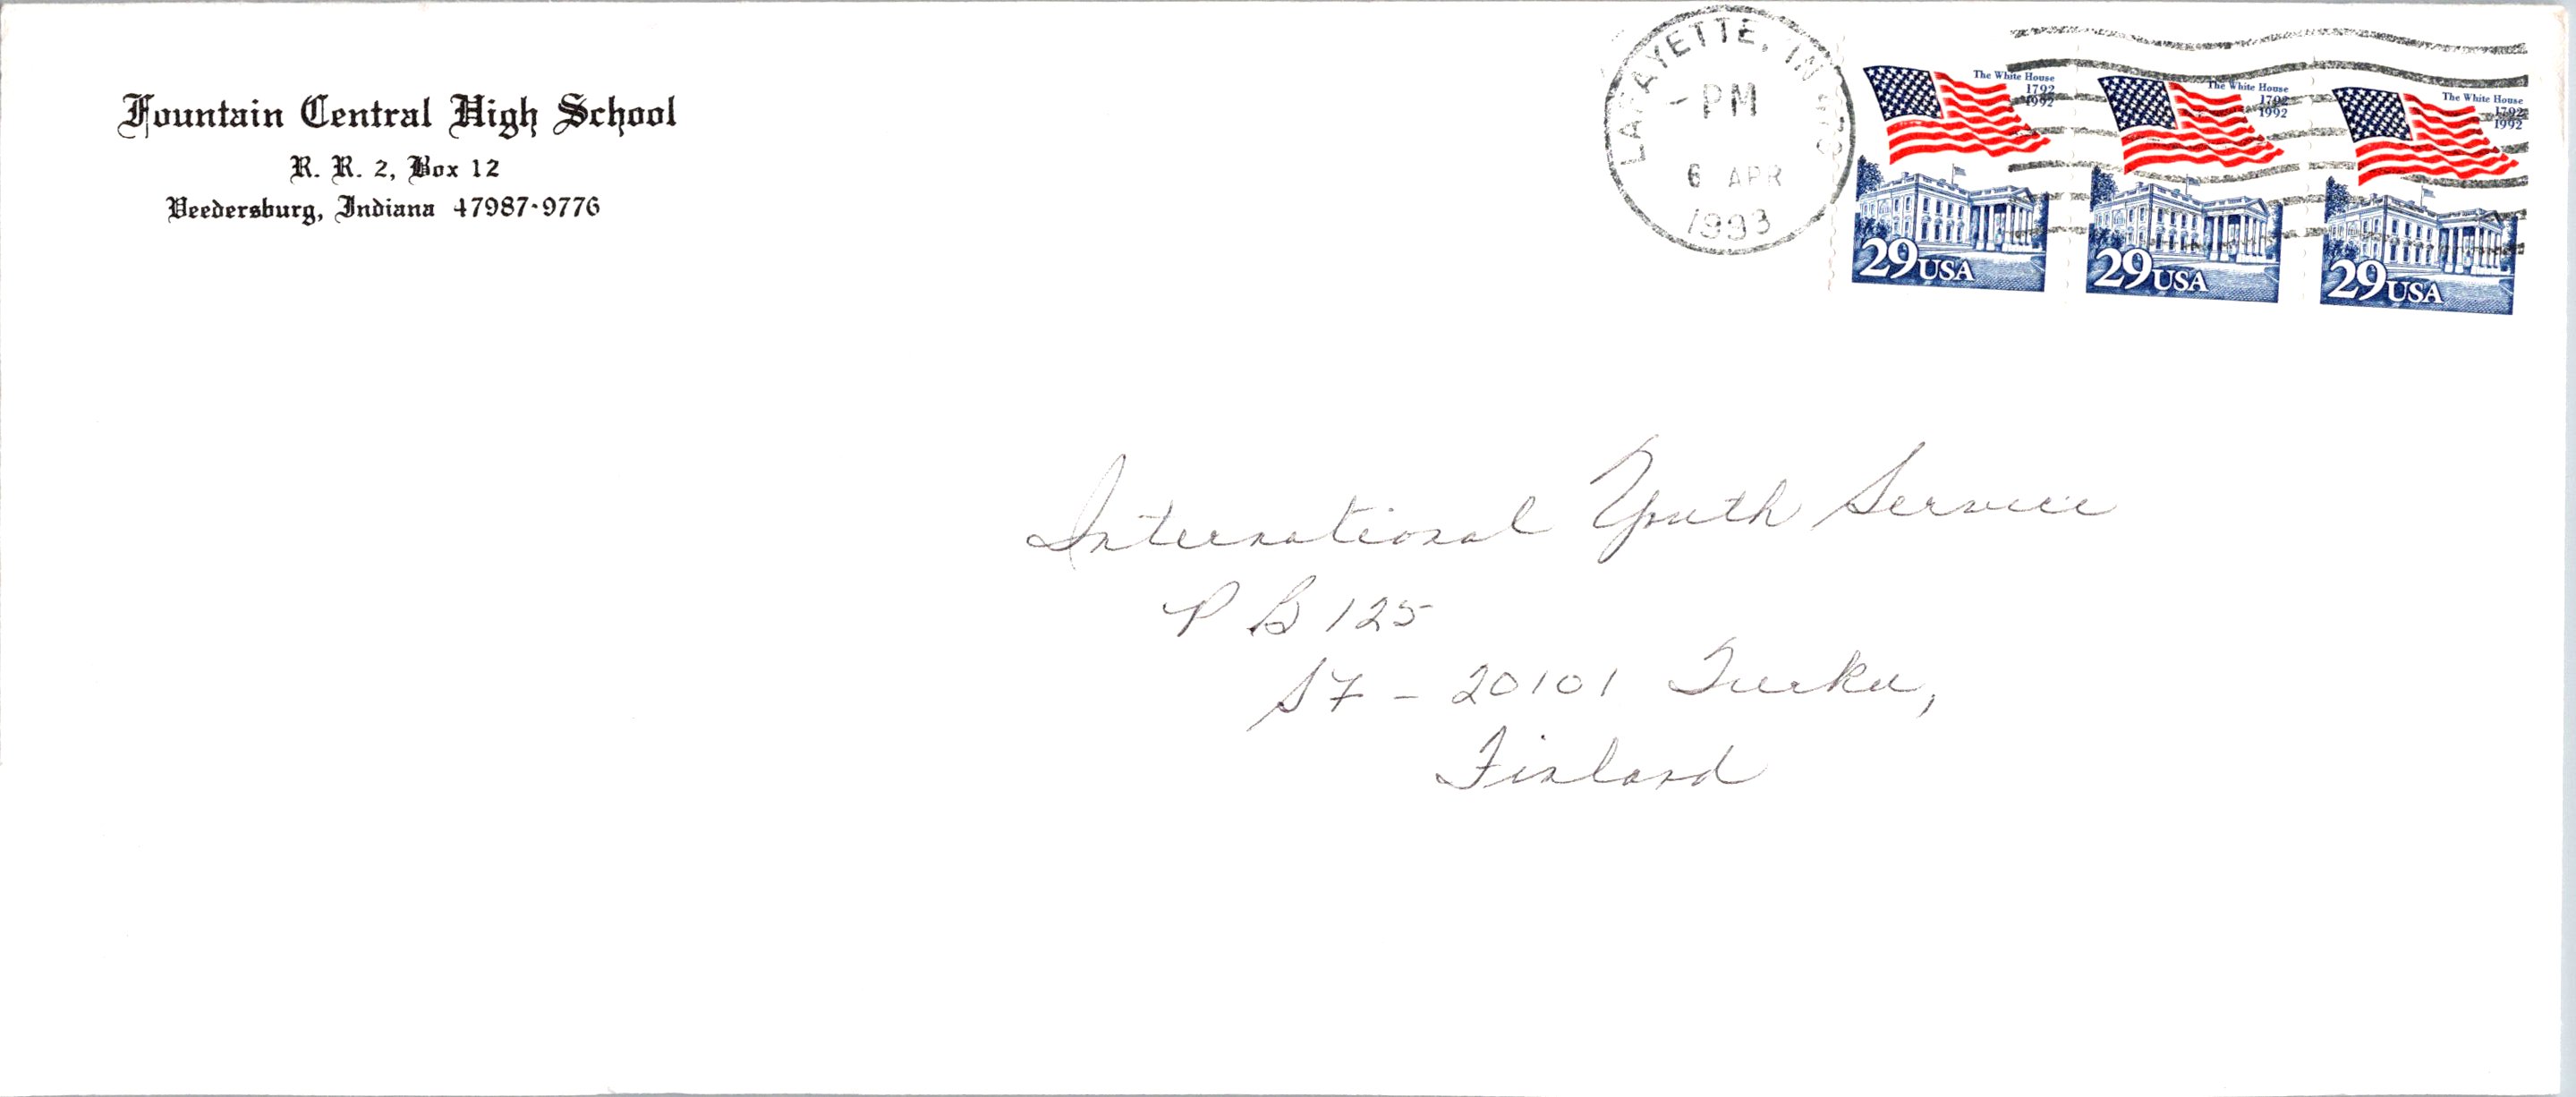 Fountain Central High School
R. R. 2, Box 12
Veedersburg, Indiana 47987-9776
LAFAYETTE, IN
PM
6 APR
1993
The White House
1792
1992
29 USA
The White House
1792
1992
29 USA
The White House
1792
1992
29 USA
International Youth Service
P B 125
SF - 20101 Turku,
Finland